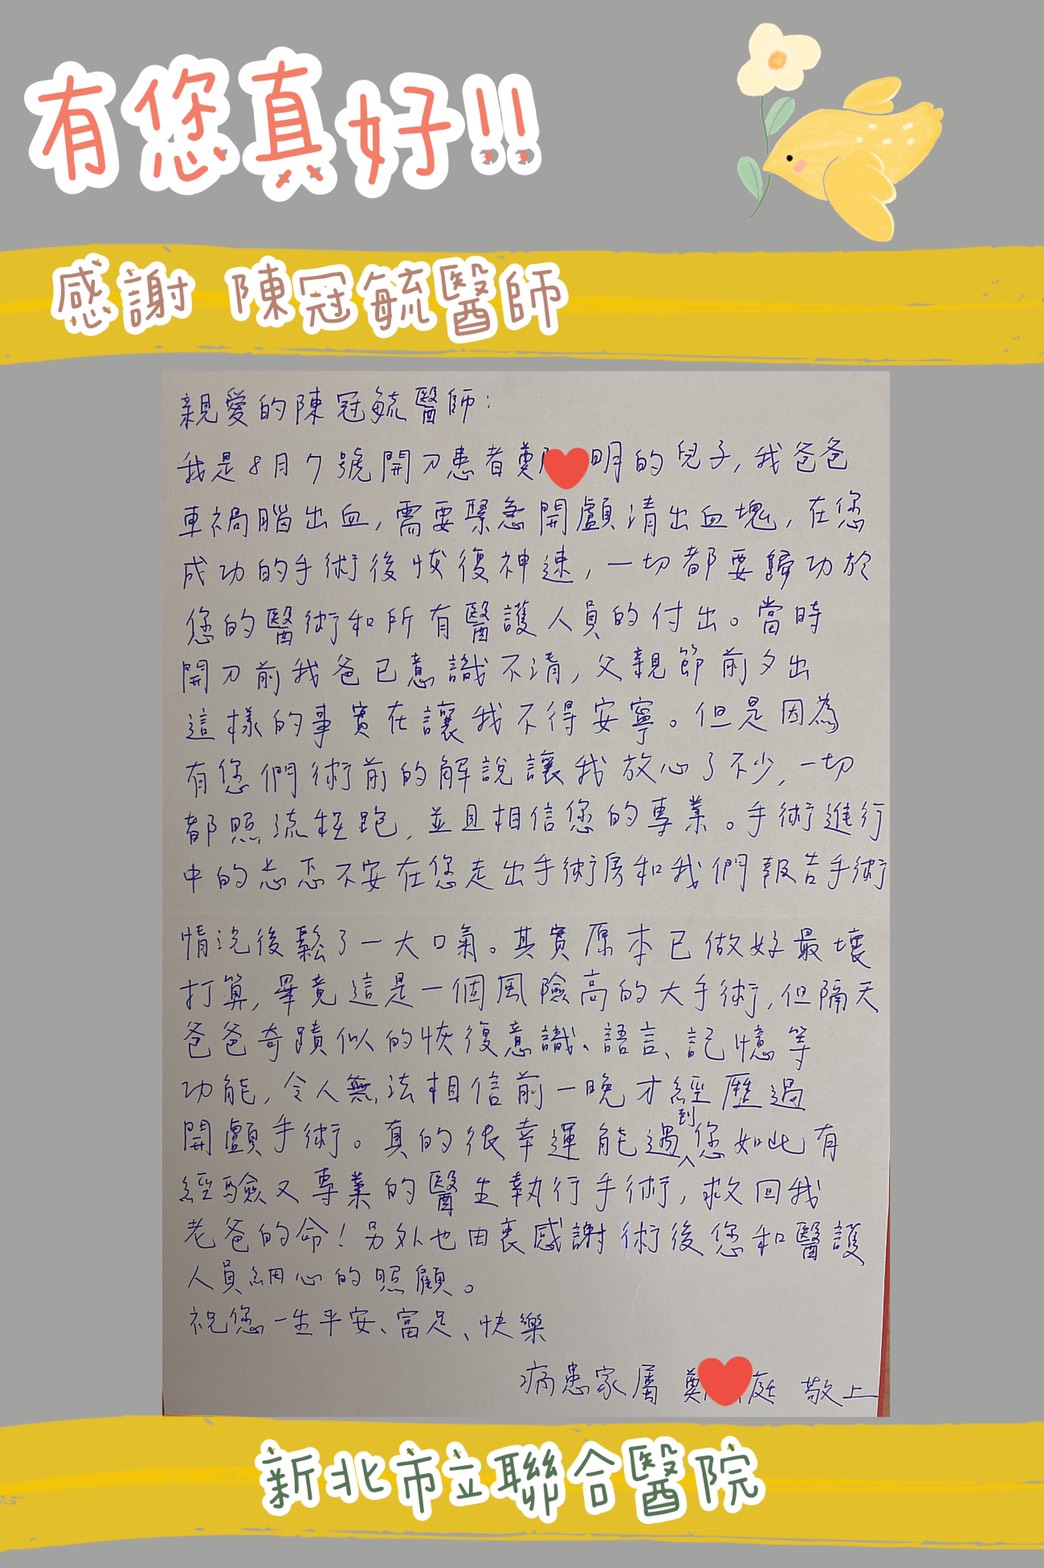 有您真好!!
感謝 陳冠毓醫師
親愛的陳冠毓醫師:
我是8月7號開刀患者鄭明的兒子,我爸爸
車禍腦出血,需要緊急開顱清出血塊,在您
成功的手術後恢復神速,一切都要歸功於
您的醫術和所有醫護人員的付出。當時
開刀前我爸已意識不清,父親節前夕出
這樣的事實在讓我不得安寧。但是因為
有您們術前的解說讓我放心了不少,一切
都照流程跑,並且相信您的專業。手術進行
中的忐忑不安在您走出手術房和我們報告手術
情況後鬆了一大口氣。其實原本已做好最壞
打算,畢竟這是一個風險高的大手術,但隔天
爸爸奇蹟似的恢復意識、語言、記憶等
功能,令人無法相信前一晚才經歷過
開顱手術。真的很幸運能遇到您如此有
經驗又專業的醫生執行手術,救回我
老爸的命!另外也由衷感謝術後您和醫護
人員細心的照顧。
祝您一生平安、富足、快樂
病患家屬 鄭庭 敬上
新北市立聯合醫院